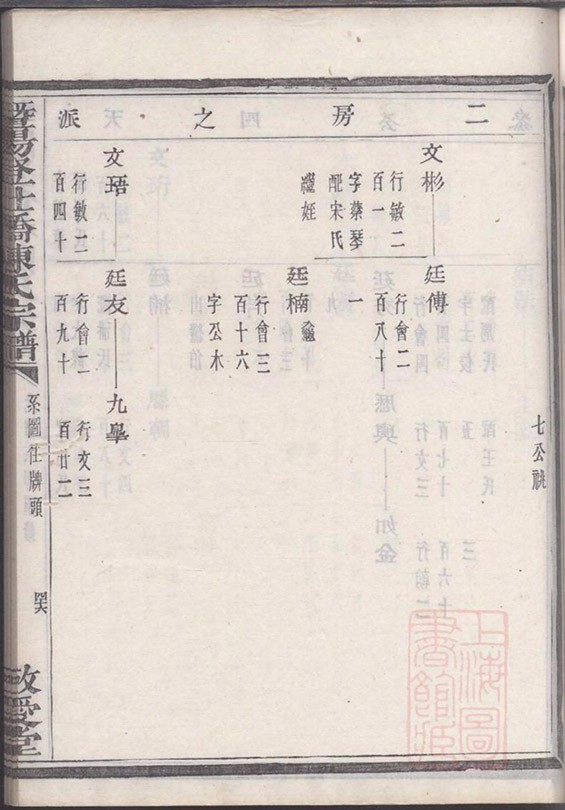 二房之派
文彬
行敏二
百一
字蔡琴
配宋氏
繼姪
廷傳
行會二
百八十
一
廷楠
繼
行會三
百十六
字公木
文珸
行敏二
百四十
廷友
行會二
百九十
九皋
行文三
百廿二
七公祧
暨陽登仕橋陳氏宗譜
系圖任牌頭
敬愛堂
上海圖書館藏